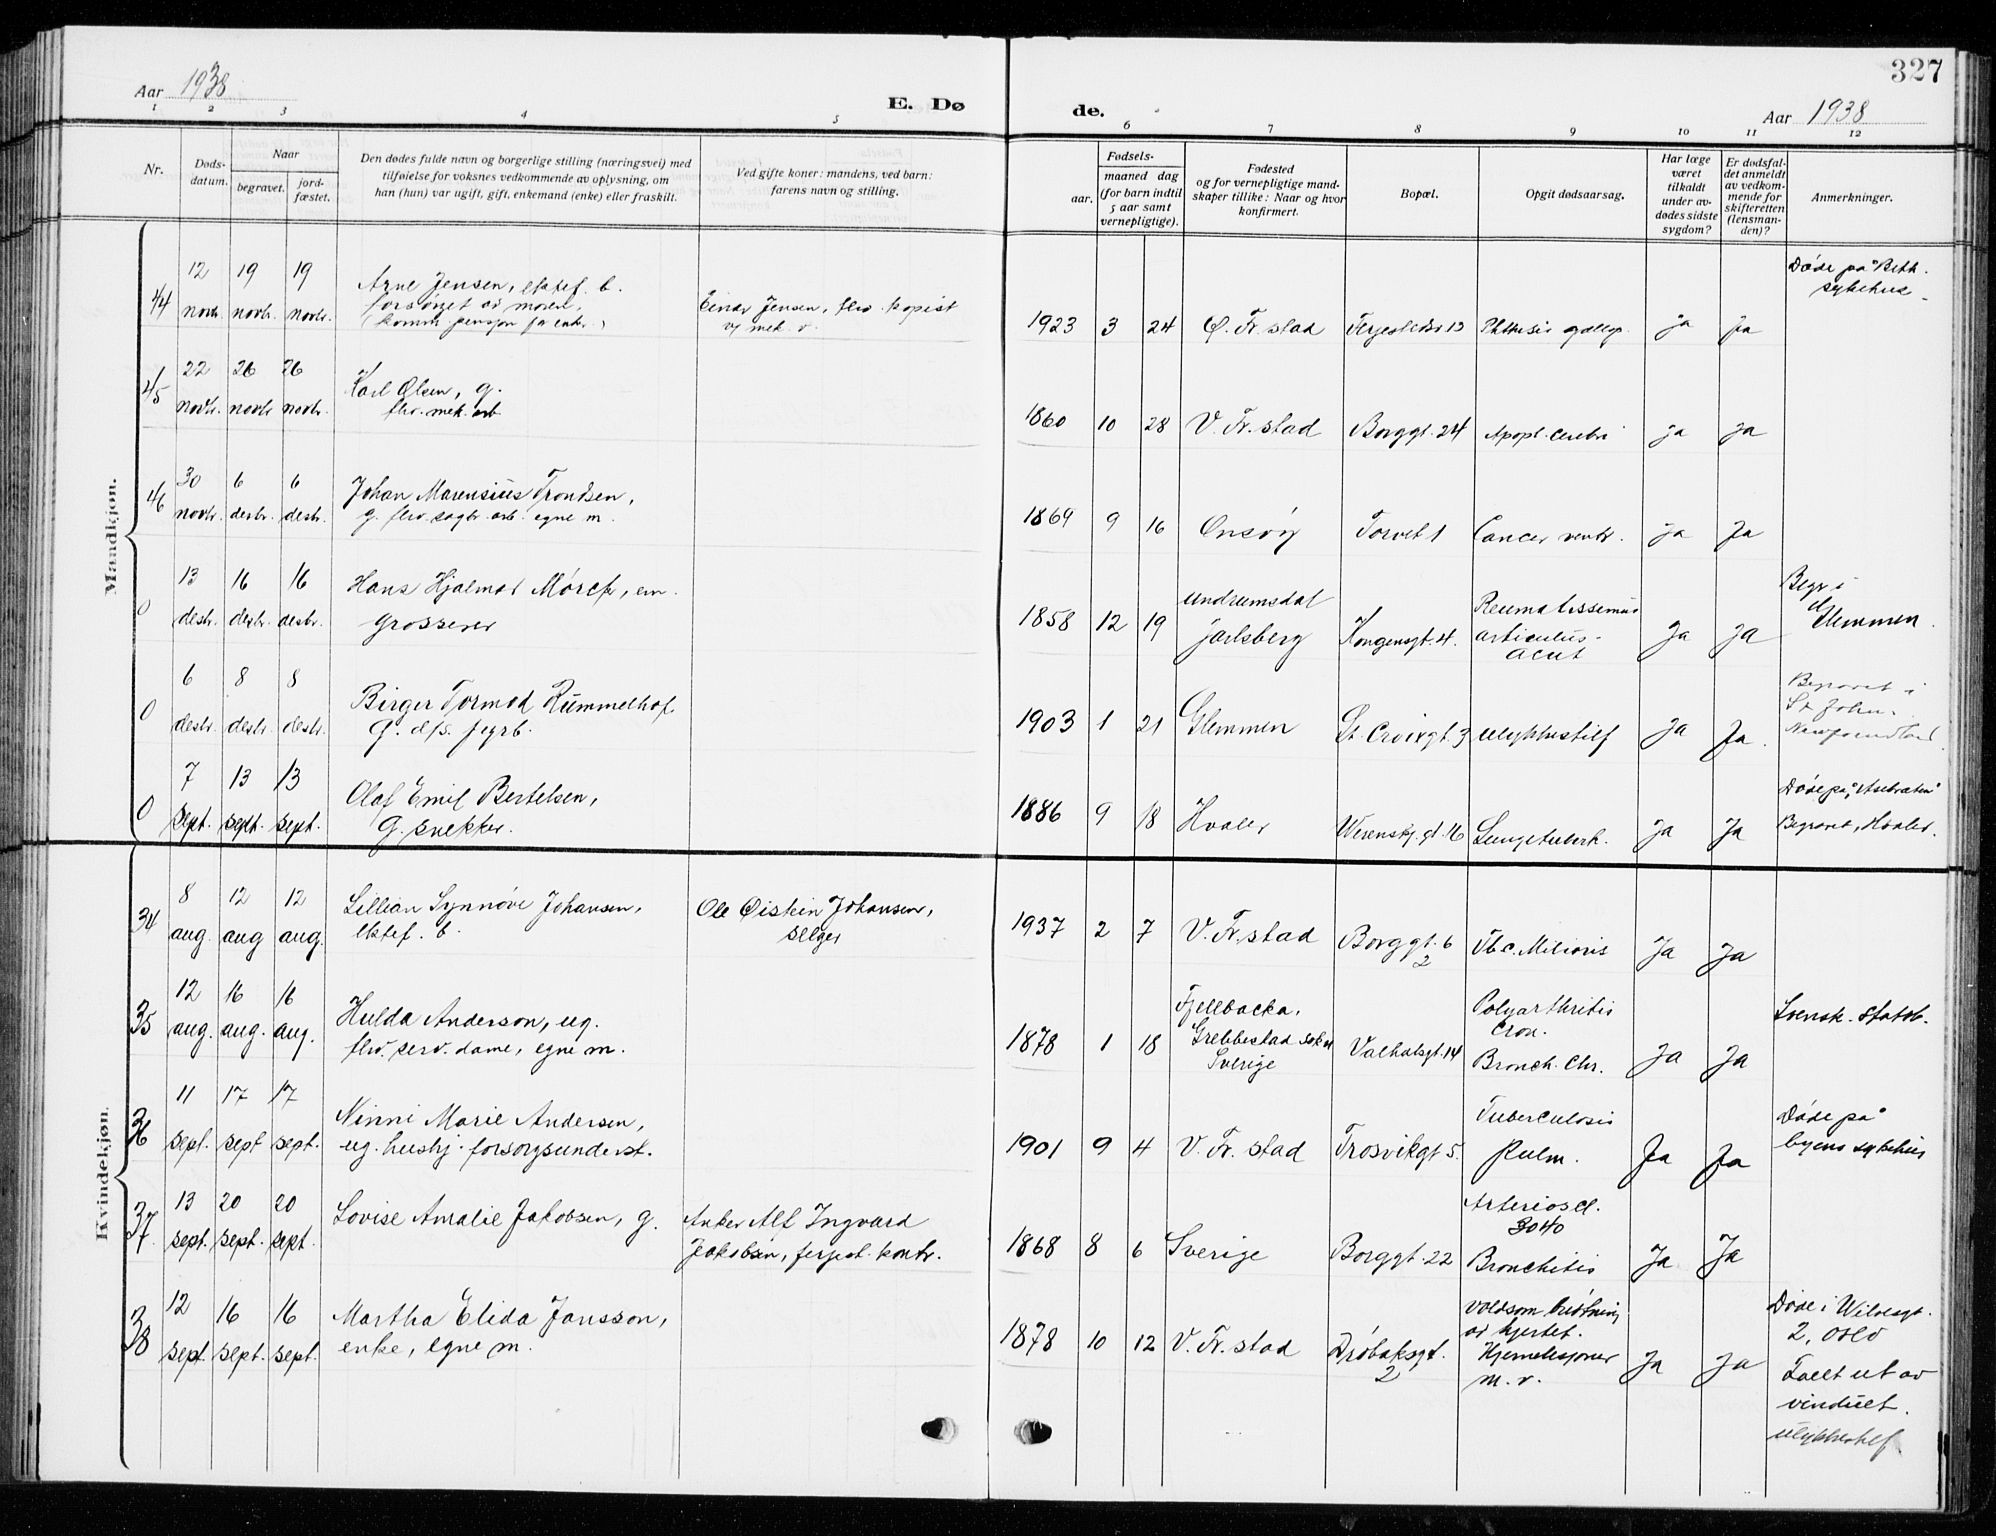 327
Aar 1938
E. Døde.
Aar 1938
1 2 3 4 5 6 7 8 9 10 11 12
Nr.
Døds-
datum.
Naar
begravet.
jord-
fæstet.
Den dødes fulde navn og borgerlige stilling (næringsvei) med
tilføielse for voksnes vedkommende av oplysning, om
han (hun) var ugift, gift, enkemand (enke) eller fraskilt.
Ved gifte koner: mandens, ved barn:
farens navn og stilling.
Fødsels-
aar.
maaned dag
(for barn indtil
5 aar samt
vernepligtige).
Fødested
og for vernepligtige mand-
skaper tillike: Naar og hvor
konfirmert.
Bopæl.
Opgit dødsaarsag.
Har læge
været
tilkaldt
under av-
dødes sidste
sygdom?
Er dødsfal-
det anmeldt
av vedkom-
mende for
skifteretten
(lensman-
den)?
Anmerkninger.
Mandkjøn.
44
12 19 19
novbr. novbr. novbr.
Arne Jensen, ektef. b.
forsørget av moren,
(komm. pensjon for enker.)
Einar Jensen, flrv. kopist
v/ mek. v.
1923 3 24 Ø. Fr.stad
ja ja
Døde på Beth.
sykehus.
45
22 26 26
novbr. novbr. novbr.
Karl Olsen, g.
flrv. mek. arb.
1860 10 28 V. Fr.stad Borggt. 24 Apopl. cerebri ja ja
46
30 6 6
novbr. desbr. desbr.
Johan Marensius Trondsen,
g. flrv. sagbr. arb. egne m.
1869 9 16 Onsøy Torvet 1 Cancer ventr. ja Ja
0
13 16 16
desbr. desbr. desbr.
Hans Hjalmar Mørch, em.
grosserer
1858 12 19
Undrumsdal
Jarlsberg
Kongensgt. 4.
Reumatissimus
articulus
acut
Ja ja
Begr. i
Glemmen.
0
6 8 8
desbr. desbr. desbr.
Birger Tormod Rummelhof
g. d/s. fyrb.
1903 1 21 Glemmen St. Croixgt. 3 Ulykkestilf ja Ja.
Begravet i
St. John.
Newfoundland.
0
7 13 13
sept. sept. sept.
Olaf Emil Bertelsen,
g. snekker.
1886 9 18 Hvaler Werenskj. gt. 16 Lungetuberk. ja Ja
Døde på
Begravet, Hvaler.
Kvindekjøn.
34
8 12 12
aug. aug aug.
Lillian Synnøve Johansen,
ektef. b.
Ole Øistein Johansen,
selger
1937 2 7 V. Fr.stad Borggt. 6
2
Tbc. Miliaris Ja Ja
35
12 16 16
aug. aug. aug.
Hulda Anderson, ug.
flrv. serv. dame, egne m.
1878 1 18
Fjellbacka,
Grebbestad sokn
Sverige
Valhalsgt. 14
Polyarthritis
Cron.
Bronch. Chr.
Ja Ja
Svensk. statsb.
36
11 17 17
sept. sept sept.
Ninni Marie Andersen,
ug. hushj. forsorgsunderst.
1901 9 4 V. Fr. stad Trosvikgt 5.
Tuberculosis
Pulm.
Ja Ja
Døde på
byens sykehus
37.
13 20 20
sept. sept. sept.
Lovise Amalie Jakobsen, g.
Anker Alf Ingvard
Jakobsen, ferjest. kontr.
1868 8 6 Sverige Borggt. 22
Arterioscl.
3040
Bronchitis
Ja Ja
38
12 16 16
sept. sept. sept.
Martha Elida Jansson,
enke, egne m.
1878 10 12 V. Fr. stad
Drøbaksgt.
2
voldsom
av hjertet.
Hjernelesjoner
m. v.
Ja Ja
Døde i Wildesgt.
2, Oslo
Falt ut av
vinduet.
Ulykkestilf.